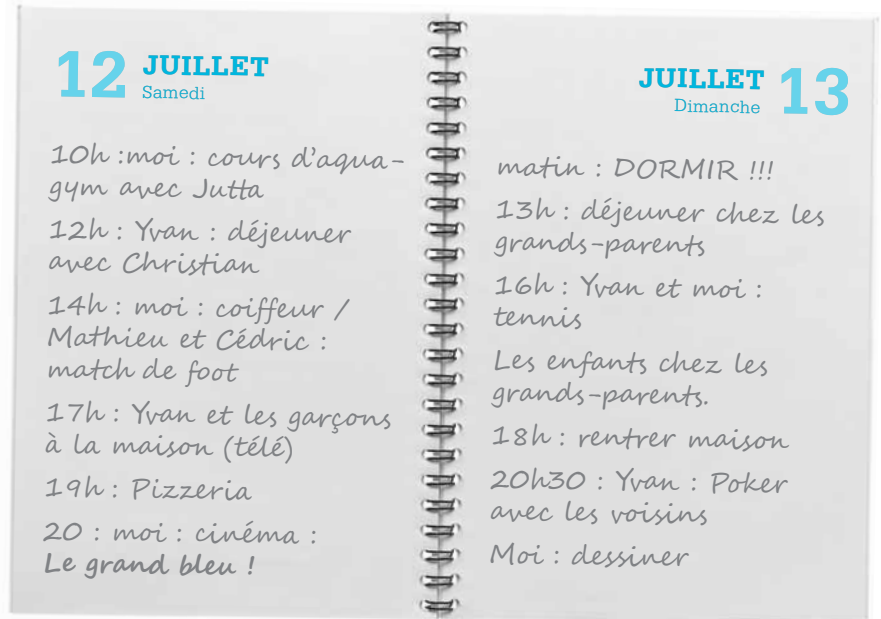 12 JUILLET
Samedi
10h :moi : cours d'aqua-
gym avec Jutta
12h : Yvan : déjeuner
avec Christian
14h : moi : coiffeur /
Mathieu et Cédric :
match de foot
17h : Yvan et les garçons
à la maison (télé)
19h : Pizzeria
20 : moi : cinéma :
Le grand bleu !
JUILLET 13
Dimanche
matin : DORMIR !!!
13h : déjeuner chez les
grands-parents
16h : Yvan et moi :
tennis
Les enfants chez les
grands-parents.
18h : rentrer maison
20h30 : Yvan : Poker
avec les voisins
Moi : dessiner